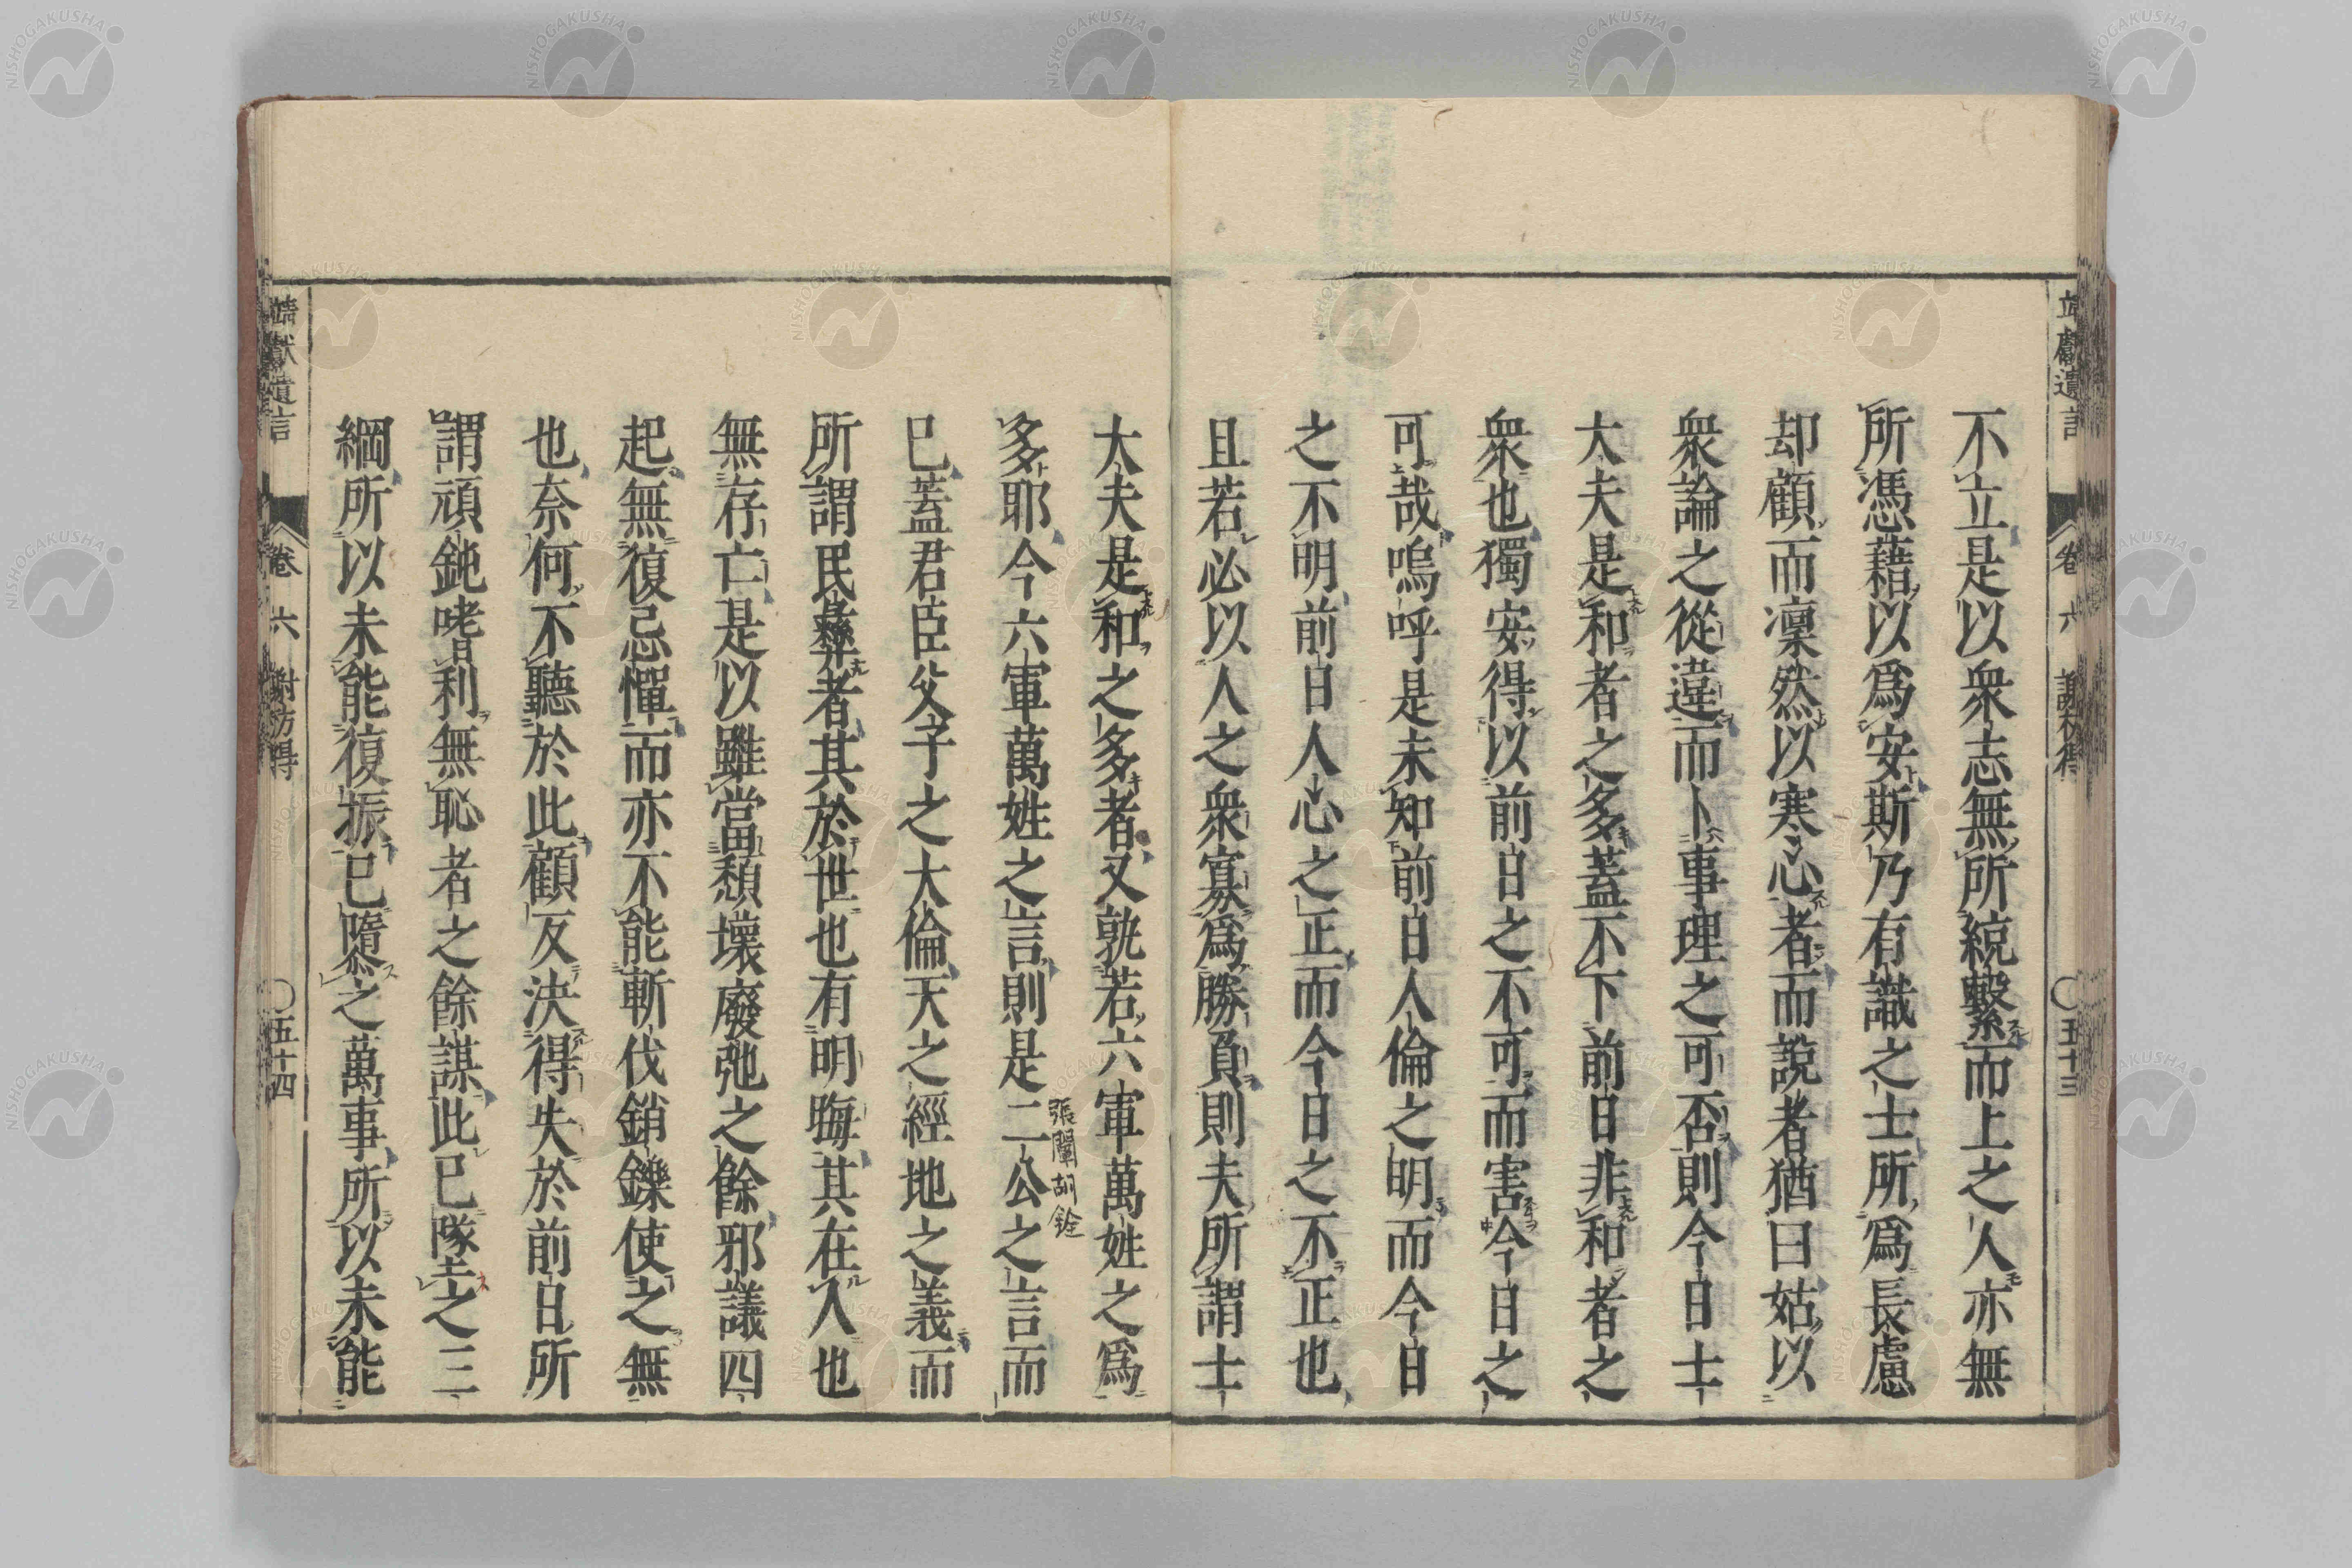 不立是以衆志無所統繫而上之人亦無
所憑藉以爲安斯乃有識之士所爲長慮
却顧而凜然以寒心者而說者猶曰姑以
衆論之從違而卜事理之可否則今日士
大夫是和者之多蓋不下前日非和者之
衆也獨安得以前日之不可而害今日之
可哉嗚呼是未知前日人倫之明而今日
之不明前日人心之正而今日之不正也
且若必以人之衆寡爲勝負則夫所謂士
大夫是和之多者又孰若六軍萬姓之爲
多耶今六軍萬姓之言則是二公之言而
張闡胡銓
已蓋君臣父子之大倫天之經地之義而
所謂民彝者其於世也有明晦其在人也
無存亡是以雖當頽壞廢弛之餘邪議四
起無復忌憚而亦不能斬伐銷鑠使之無
也奈何不聽於此顧反決得失於前日所
謂頑鈍嗜利無恥者之餘謀此已隊之三
綱所以未能復振已隳之萬事所以未能
靖獻遺言 卷六 謝枋得 〇五十三
靖獻遺言 卷六 謝枋得 〇五十四
NISHOGAKUSHA